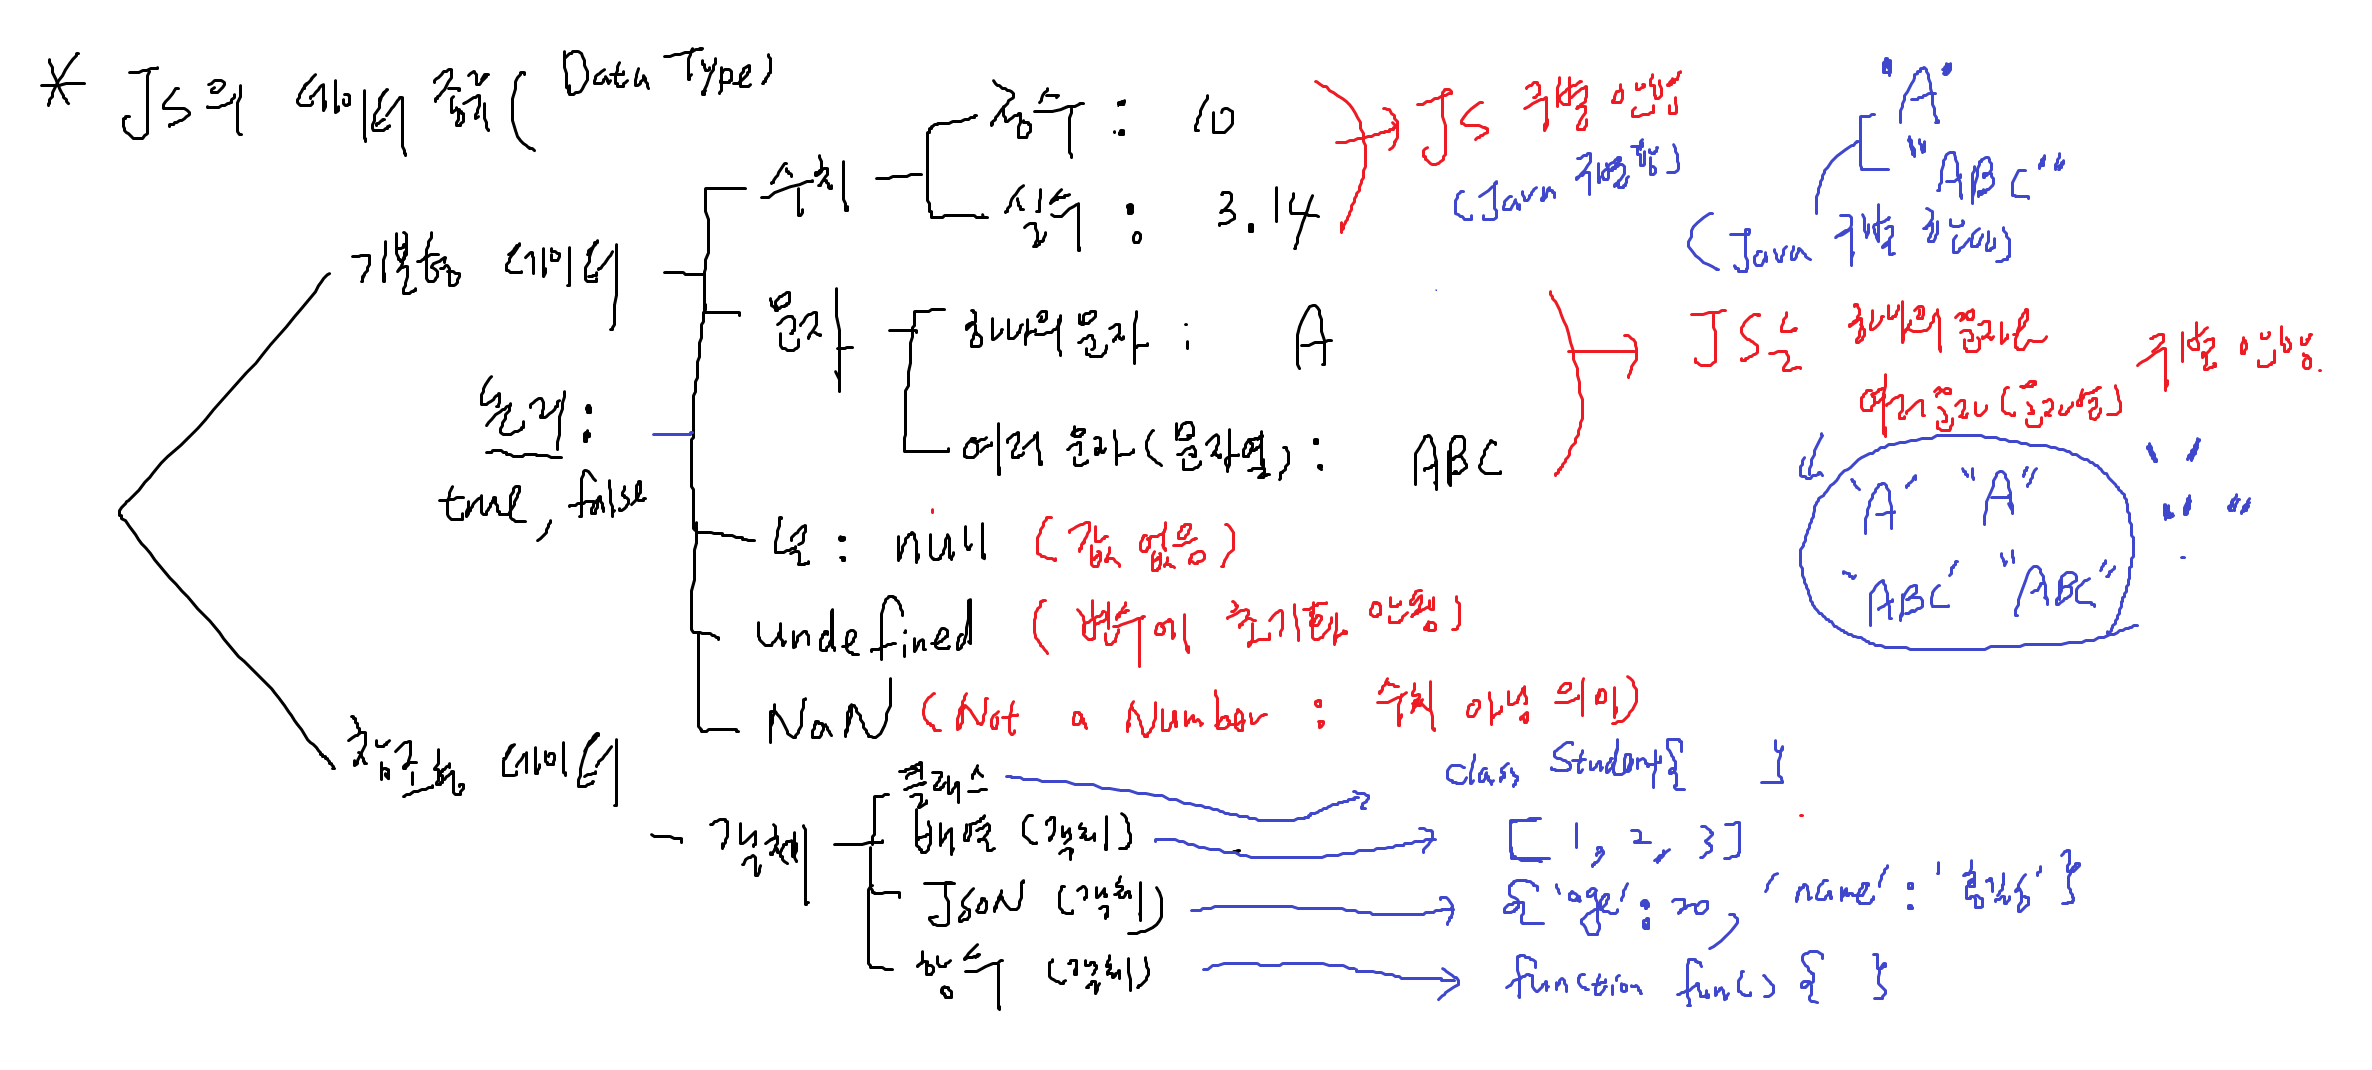 * JS의 데이터 종류 (Data Type)
기본형 데이터
수치
정수 : 10
실수 : 3.14
JS 구별 안함
(Java 구별함)
'A'
"ABC"
(Java 구별 했어)
문자
하나의 문자 : A
여러 문자(문자열) : ABC
JS는 하나의 문자와
여러문자(문자열) 구별 안함.
'A' "A" ' '
'ABC' "ABC" " "
논리 :
true, false
널 : null (값 없음)
undefined (변수에 초기화 안됨)
NaN (Not a Number : 수치 아님 의미)
참조형 데이터
객체
클래스 class Student{ }
배열 (객체) [1, 2, 3]
JSON (객체) {'age':20, 'name':'홍길동'}
함수 (객체) function fun() { }